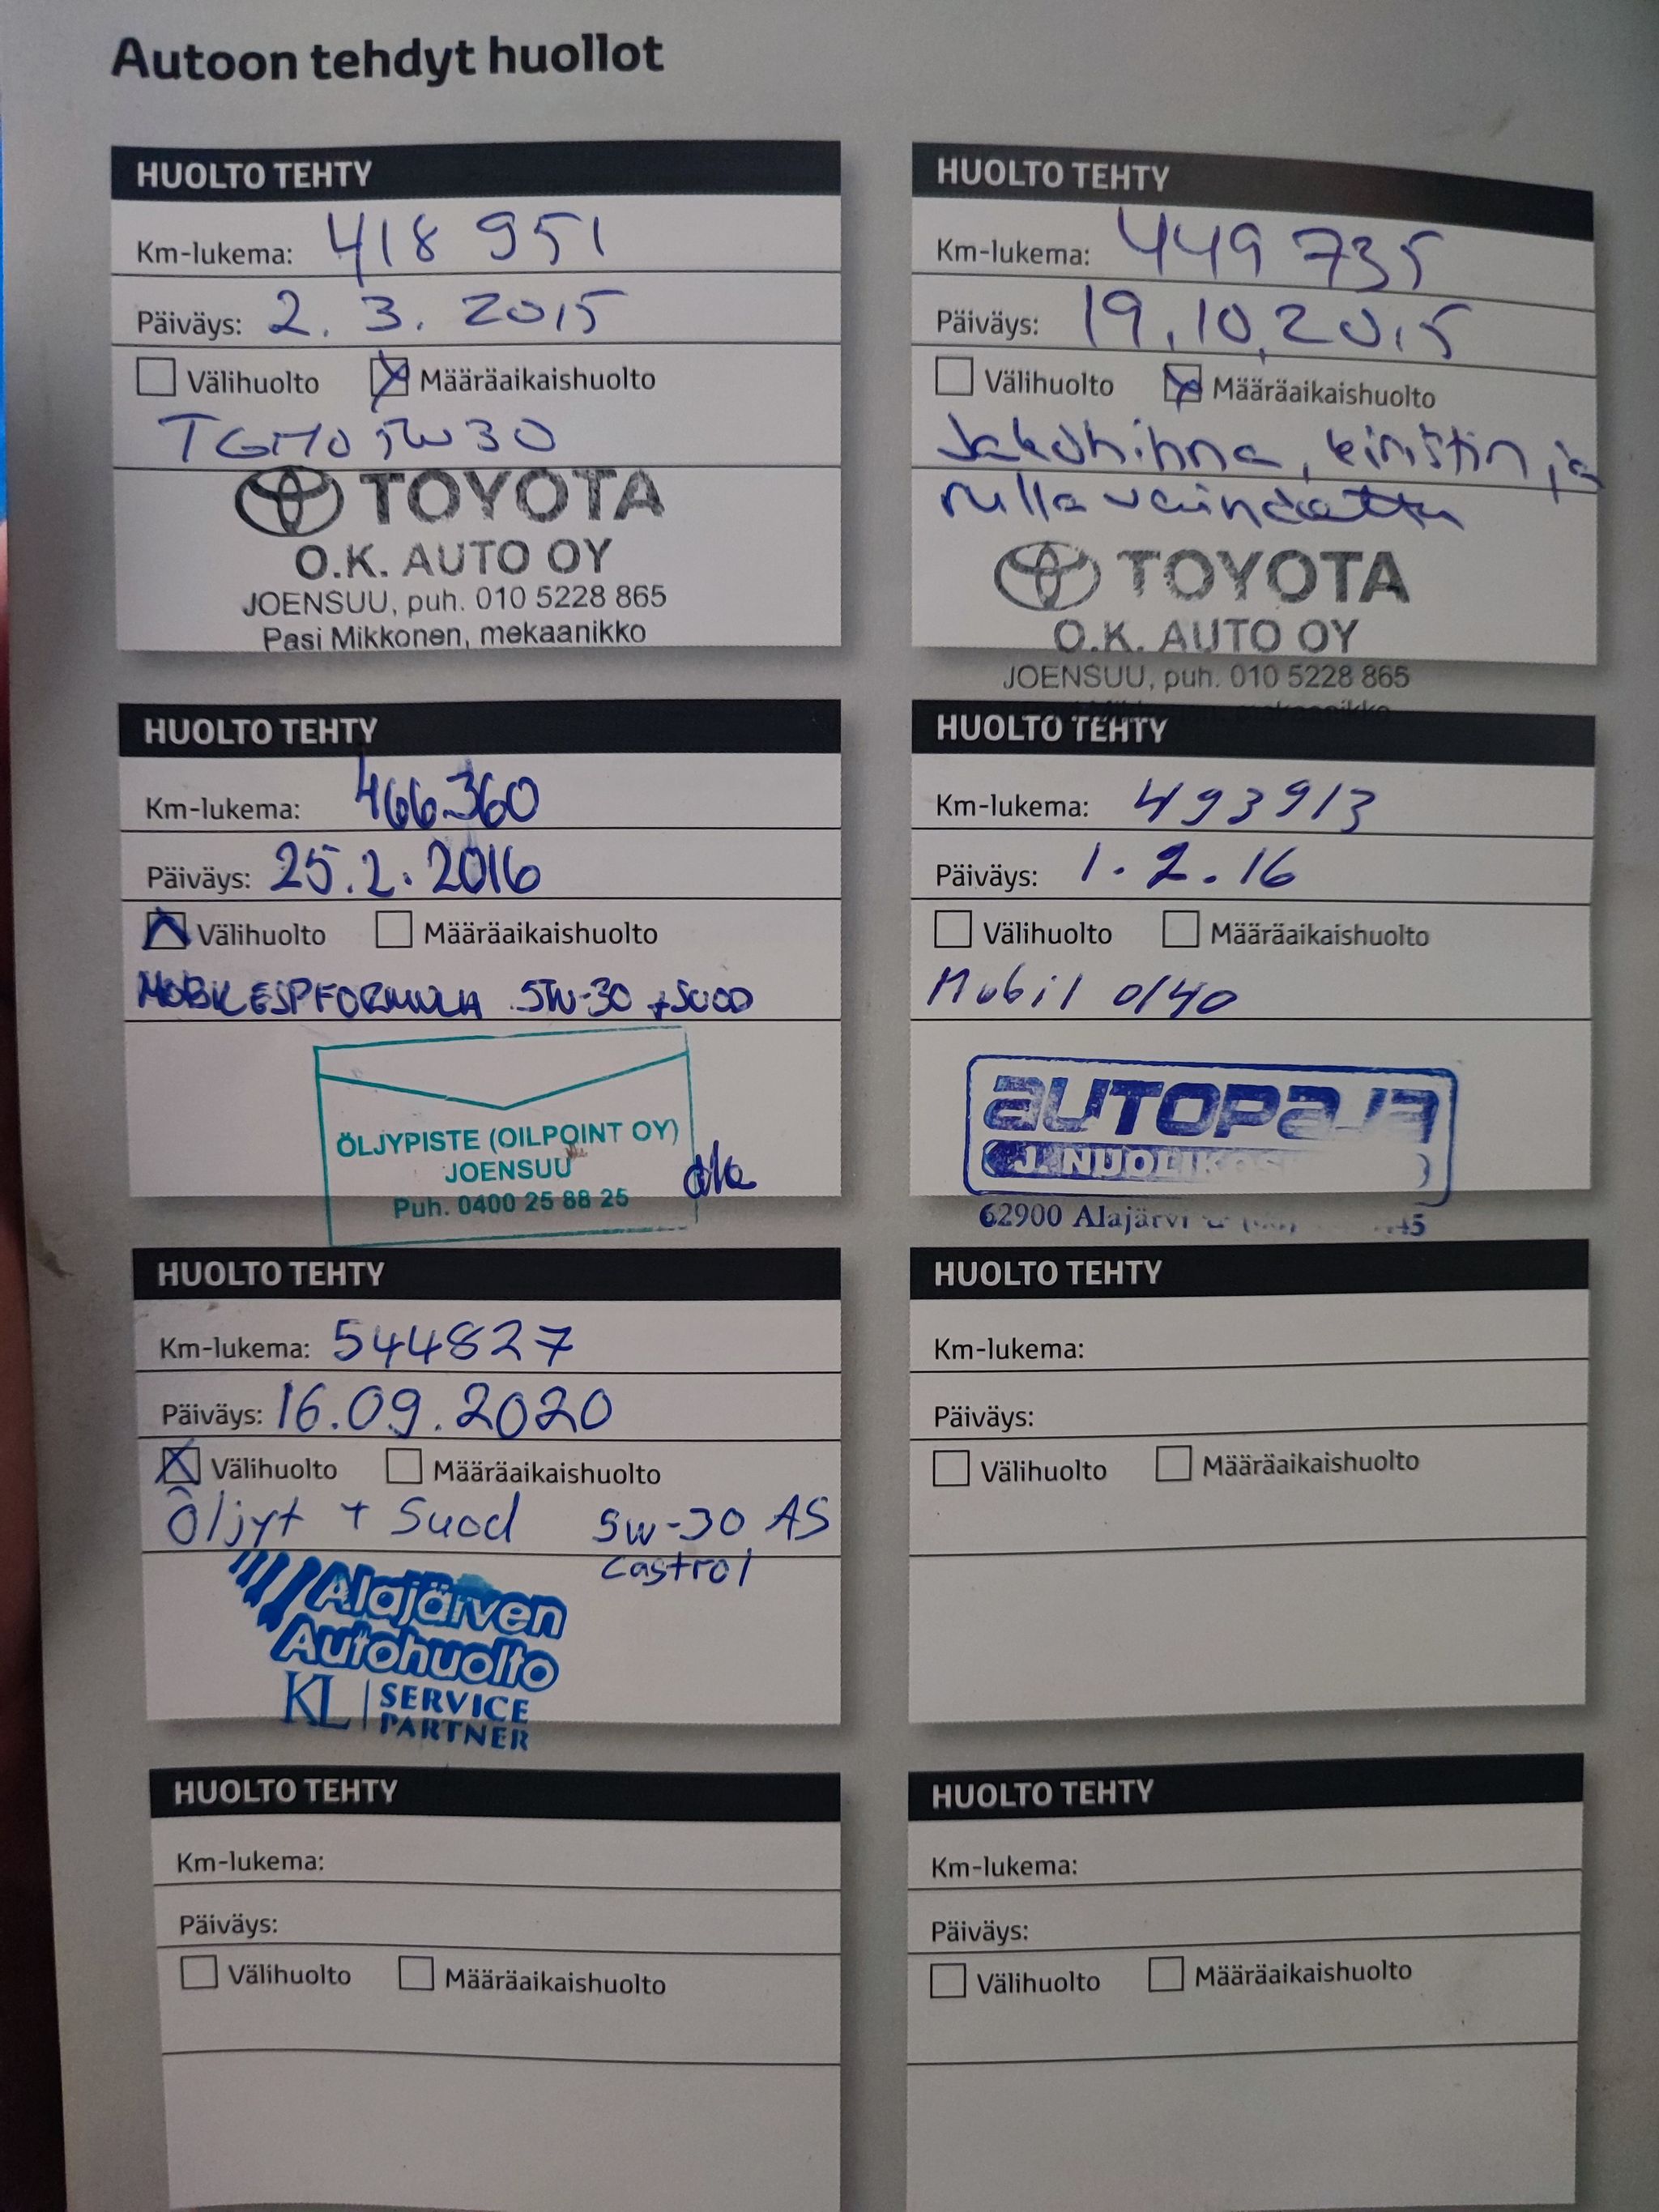 Autoon tehdyt huollot
HUOLTO TEHTY
Km-lukema: 418 951
Päiväys: 2. 3. 2015
Välihuolto Määräaikaishuolto
TGMO 5W30
TOYOTA
O.K. AUTO OY
JOENSUU, puh. 010 5228 865
Pasi Mikkonen, mekaanikko
HUOLTO TEHTY
Km-lukema: 449 735
Päiväys: 19.10.2015
Välihuolto Määräaikaishuolto
Jakohihna, kiristin ja
rulla vaihdettu
TOYOTA
O.K. AUTO OY
JOENSUU, puh. 010 5228 865
mekaanikko
HUOLTO TEHTY
Km-lukema: 466360
Päiväys: 25.2.2016
Välihuolto Määräaikaishuolto
MOBIL ESP FORMULA 5W-30 + SUOD
ÖLJYPISTE (OILPOINT OY)
JOENSUU
Puh. 0400 25 88 25
HUOLTO TEHTY
Km-lukema: 493913
Päiväys: 1.2.16
Välihuolto Määräaikaishuolto
Mobil 0/40
AUTOPAJA
62900 Alajärvi
HUOLTO TEHTY
Km-lukema: 544827
Päiväys: 16.09.2020
Välihuolto Määräaikaishuolto
Öljyt + Suod 5w-30 AS
Castrol
Alajärven
Autohuolto
KL SERVICE
PARTNER
HUOLTO TEHTY
Km-lukema:
Päiväys:
Välihuolto Määräaikaishuolto
HUOLTO TEHTY
Km-lukema:
Päiväys:
Välihuolto Määräaikaishuolto
HUOLTO TEHTY
Km-lukema:
Päiväys:
Välihuolto Määräaikaishuolto